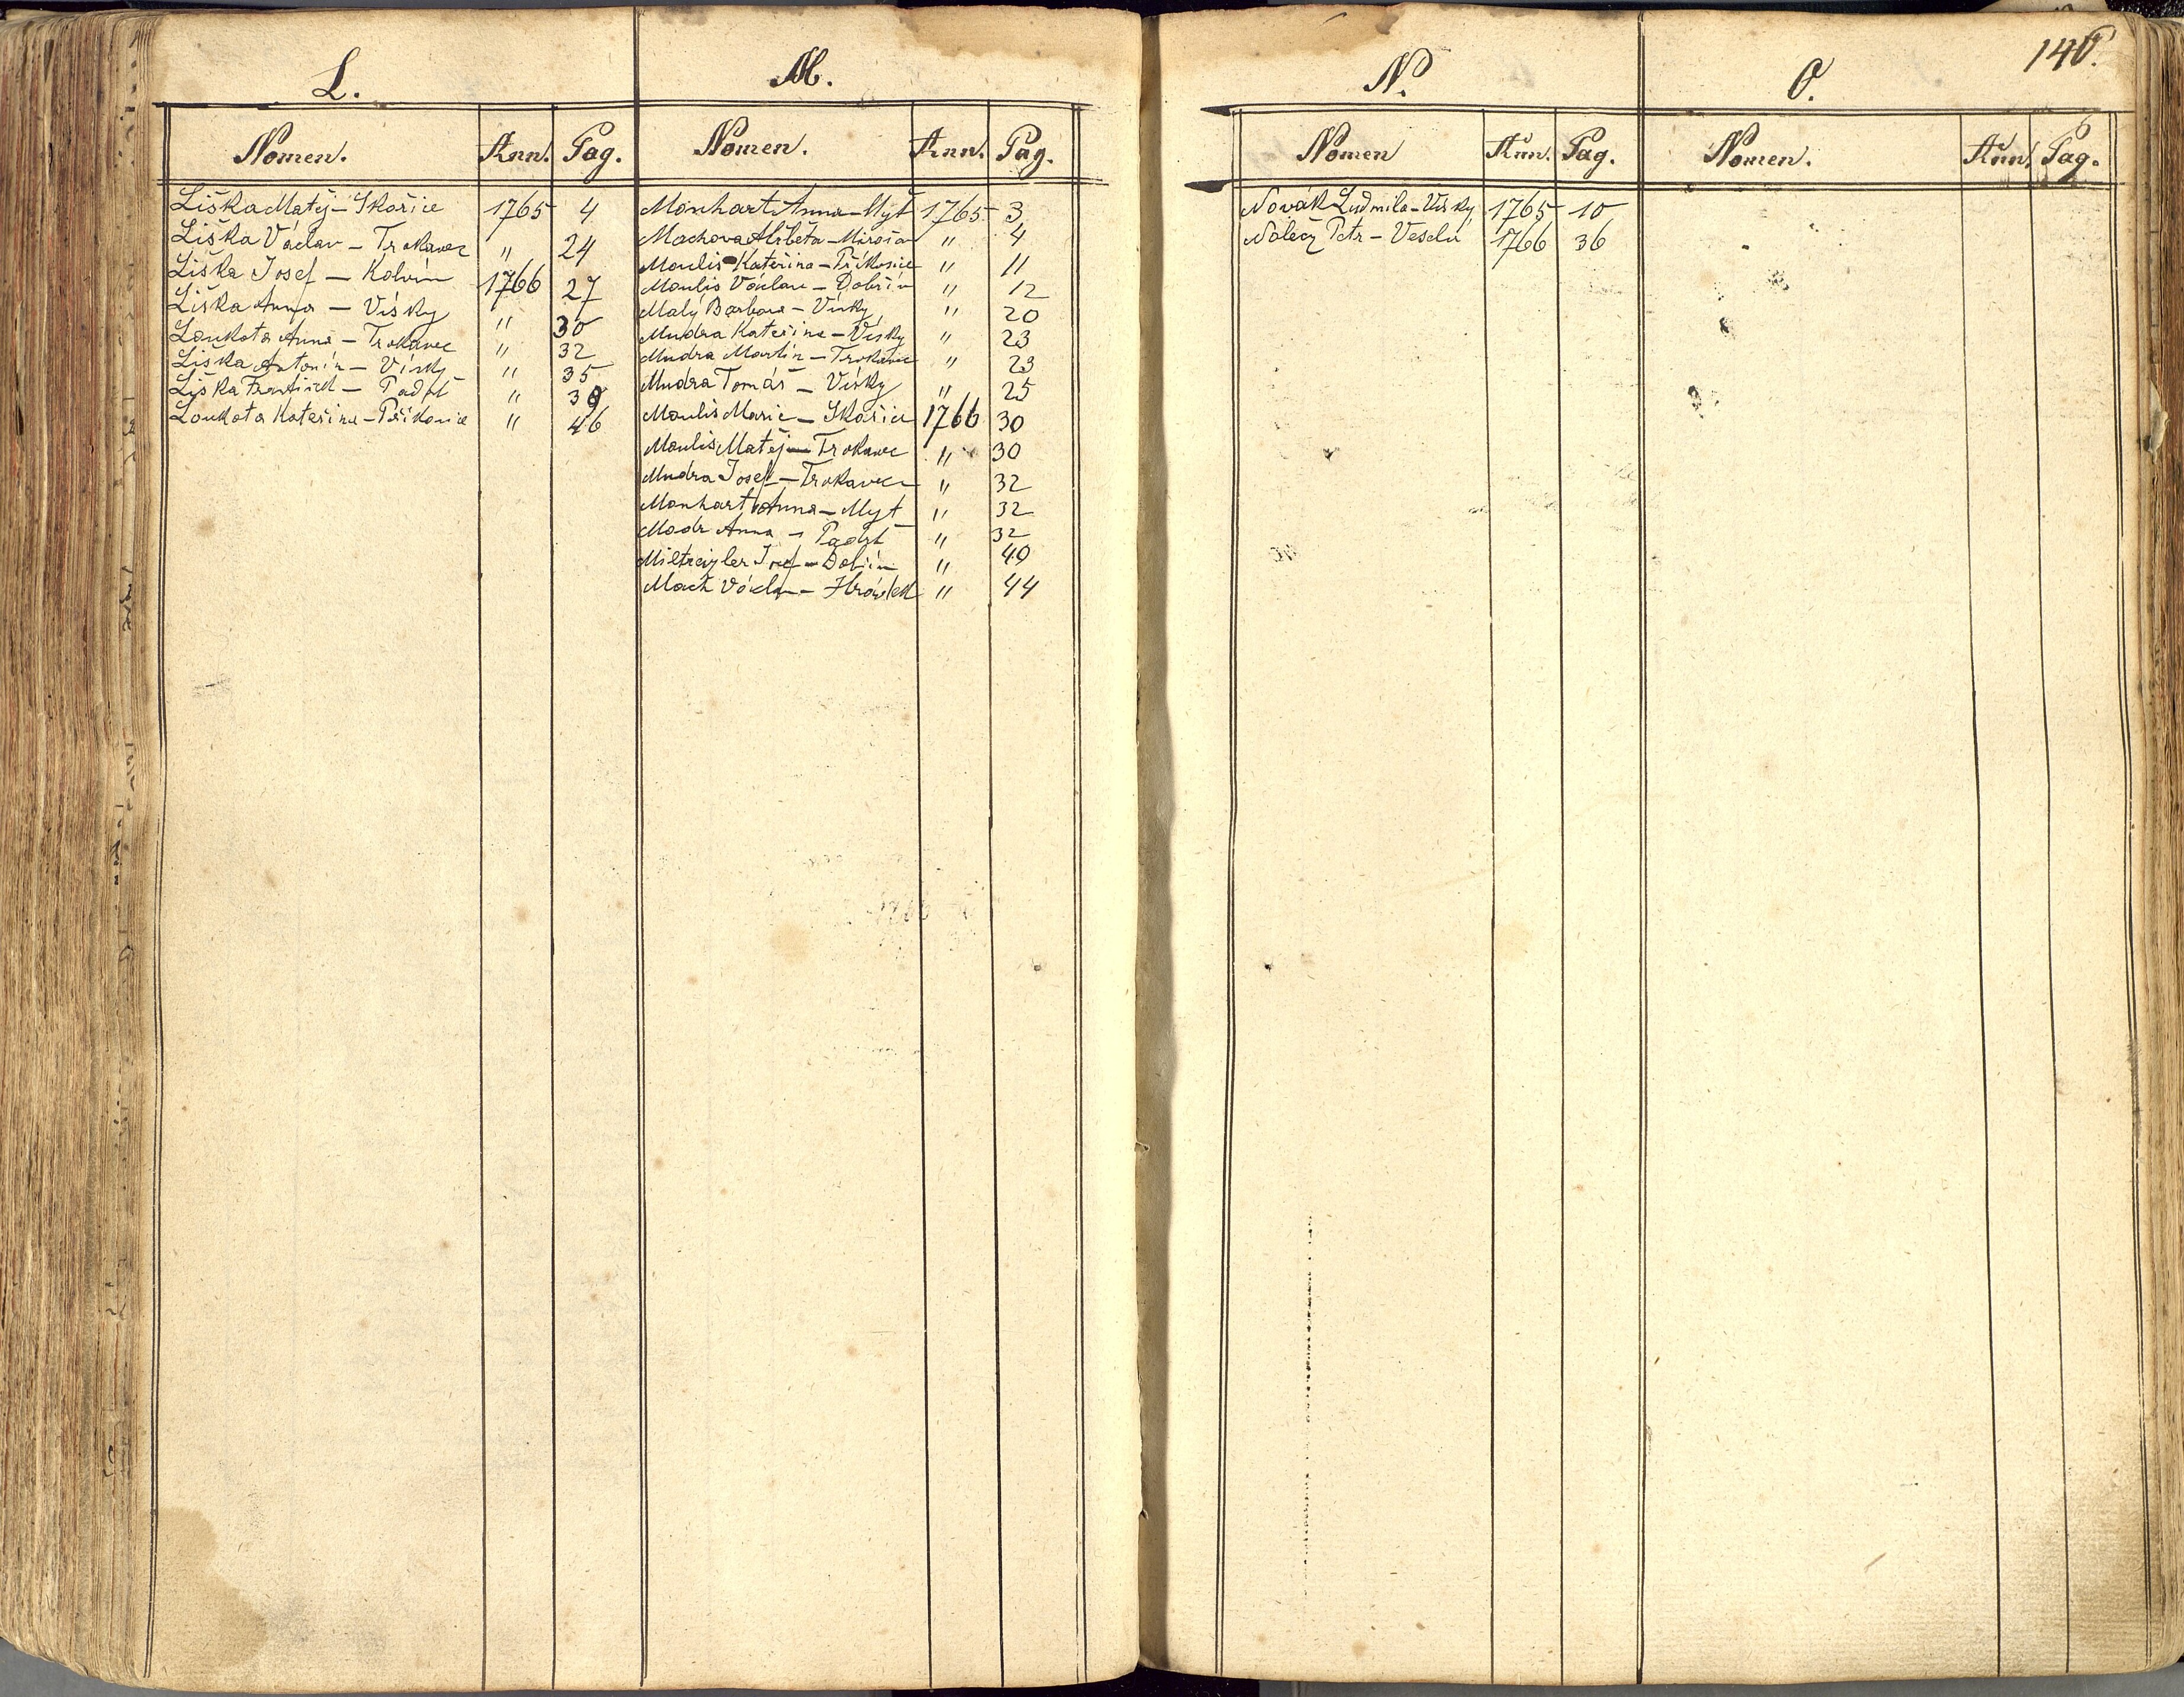 L.
Nomen. Ann. Pag.
Liška Matěj – Skořice 1765 4
Liška Václav – Trokavec " 24
Liška Josef – Kolvín 1766 27
Liška Anna – Vísky " 30
Loukota Anna – Trokavec " 32
Liška Antonín – Vísky " 35
Liška František – Padrť " 39
Loukota Kateřina – Příkosice " 46
M.
Nomen. Ann. Pag.
Monhart Anna – Myt 1765 3
Machova Alžběta – Mirošov " 4
Moulis Kateřina – Příkosice " 11
Moulis Václav – Dobřív " 12
Malý Barbora – Vísky " 20
Mudra Kateřina – Vísky " 23
Mudra Martin – Trokavec " 23
Mudra Tomáš – Vísky " 25
Moulis Marie – Skořice 1766 30
Moulis Matěj – Trokavec " 30
Mudra Josef – Trokavec " 32
Monhart Anna – Myt " 32
Modr Anna – Padrť " 32
Josef – Dobřív " 40
Mach Václav – Hrádek " 44
N.
Nomen Ann. Pag.
Novák Ludmila – Vísky 1765 10
Petr – Veselá 1766 36
140.
O.
Nomen. Ann. Pag.